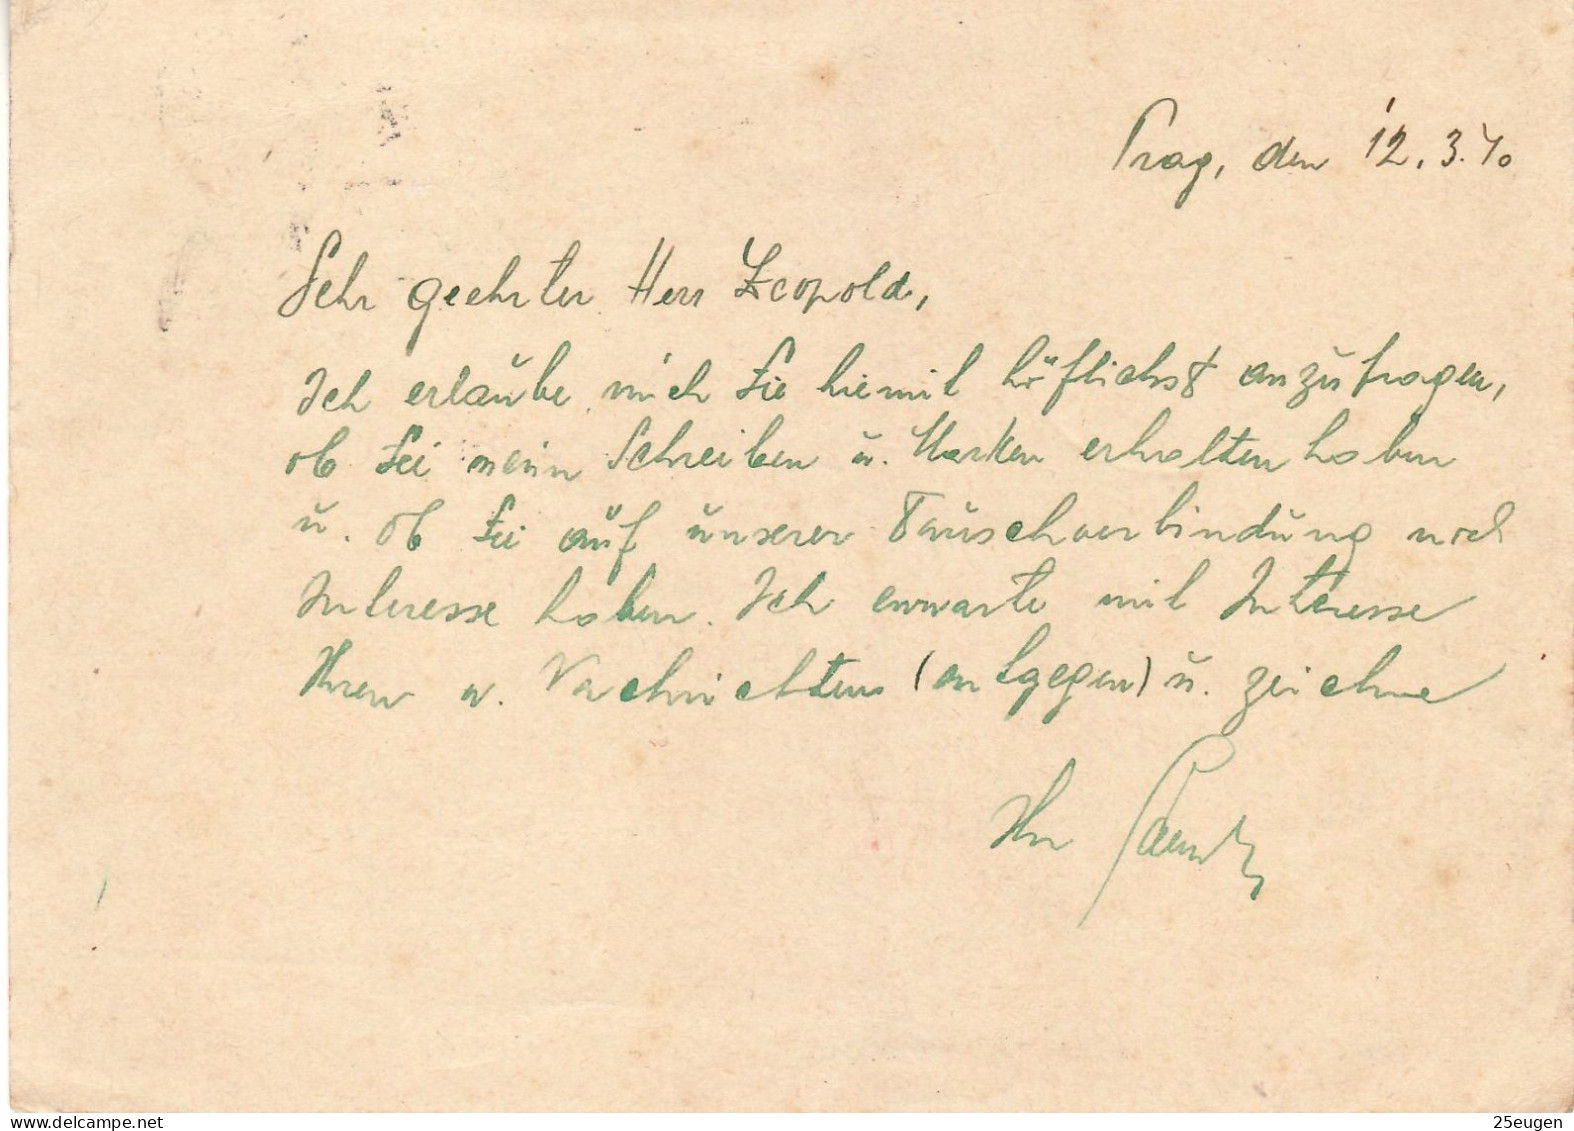 Prag, den 12.3.40
Sehr geehrter Herr Leopold,
Ich erlaube mich Sie hiemit höflichst anzufragen,
ob Sei mein Schreiben u. Marken erhalten haben
u. ob Sei auf unserer Tauschverbindung noch
Interesse haben. Ich erwarte mit Interesse
Ihren w. Nachrichten (entgegen) u. zeichne
Ihr
delcampe.net
25eugen